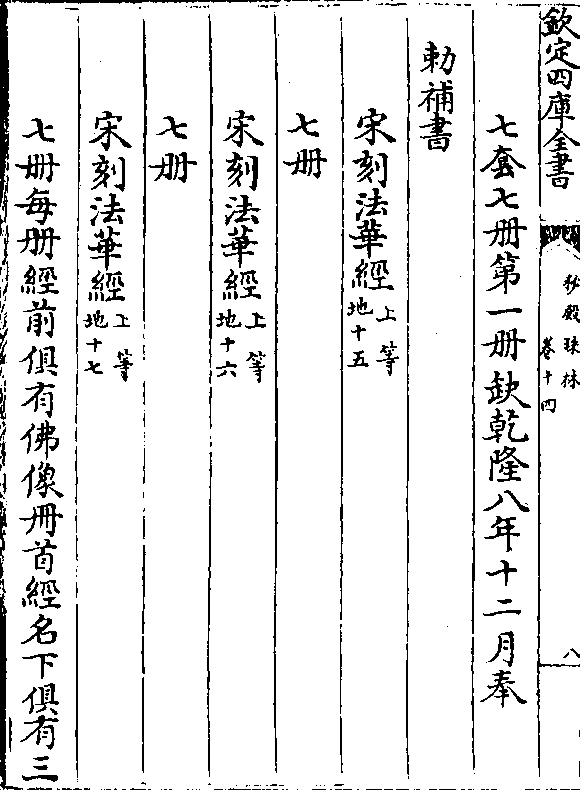 欽定四庫全書
秘殿珠林
卷十四
八
七套七册第一册缺乾隆八年十二月奉
勅補書
宋刻法華經上等地十五
七册
宋刻法華經上等地十六
七册
宋刻法華經上等地十七
七册每册經前俱有佛像册首經名下俱有三